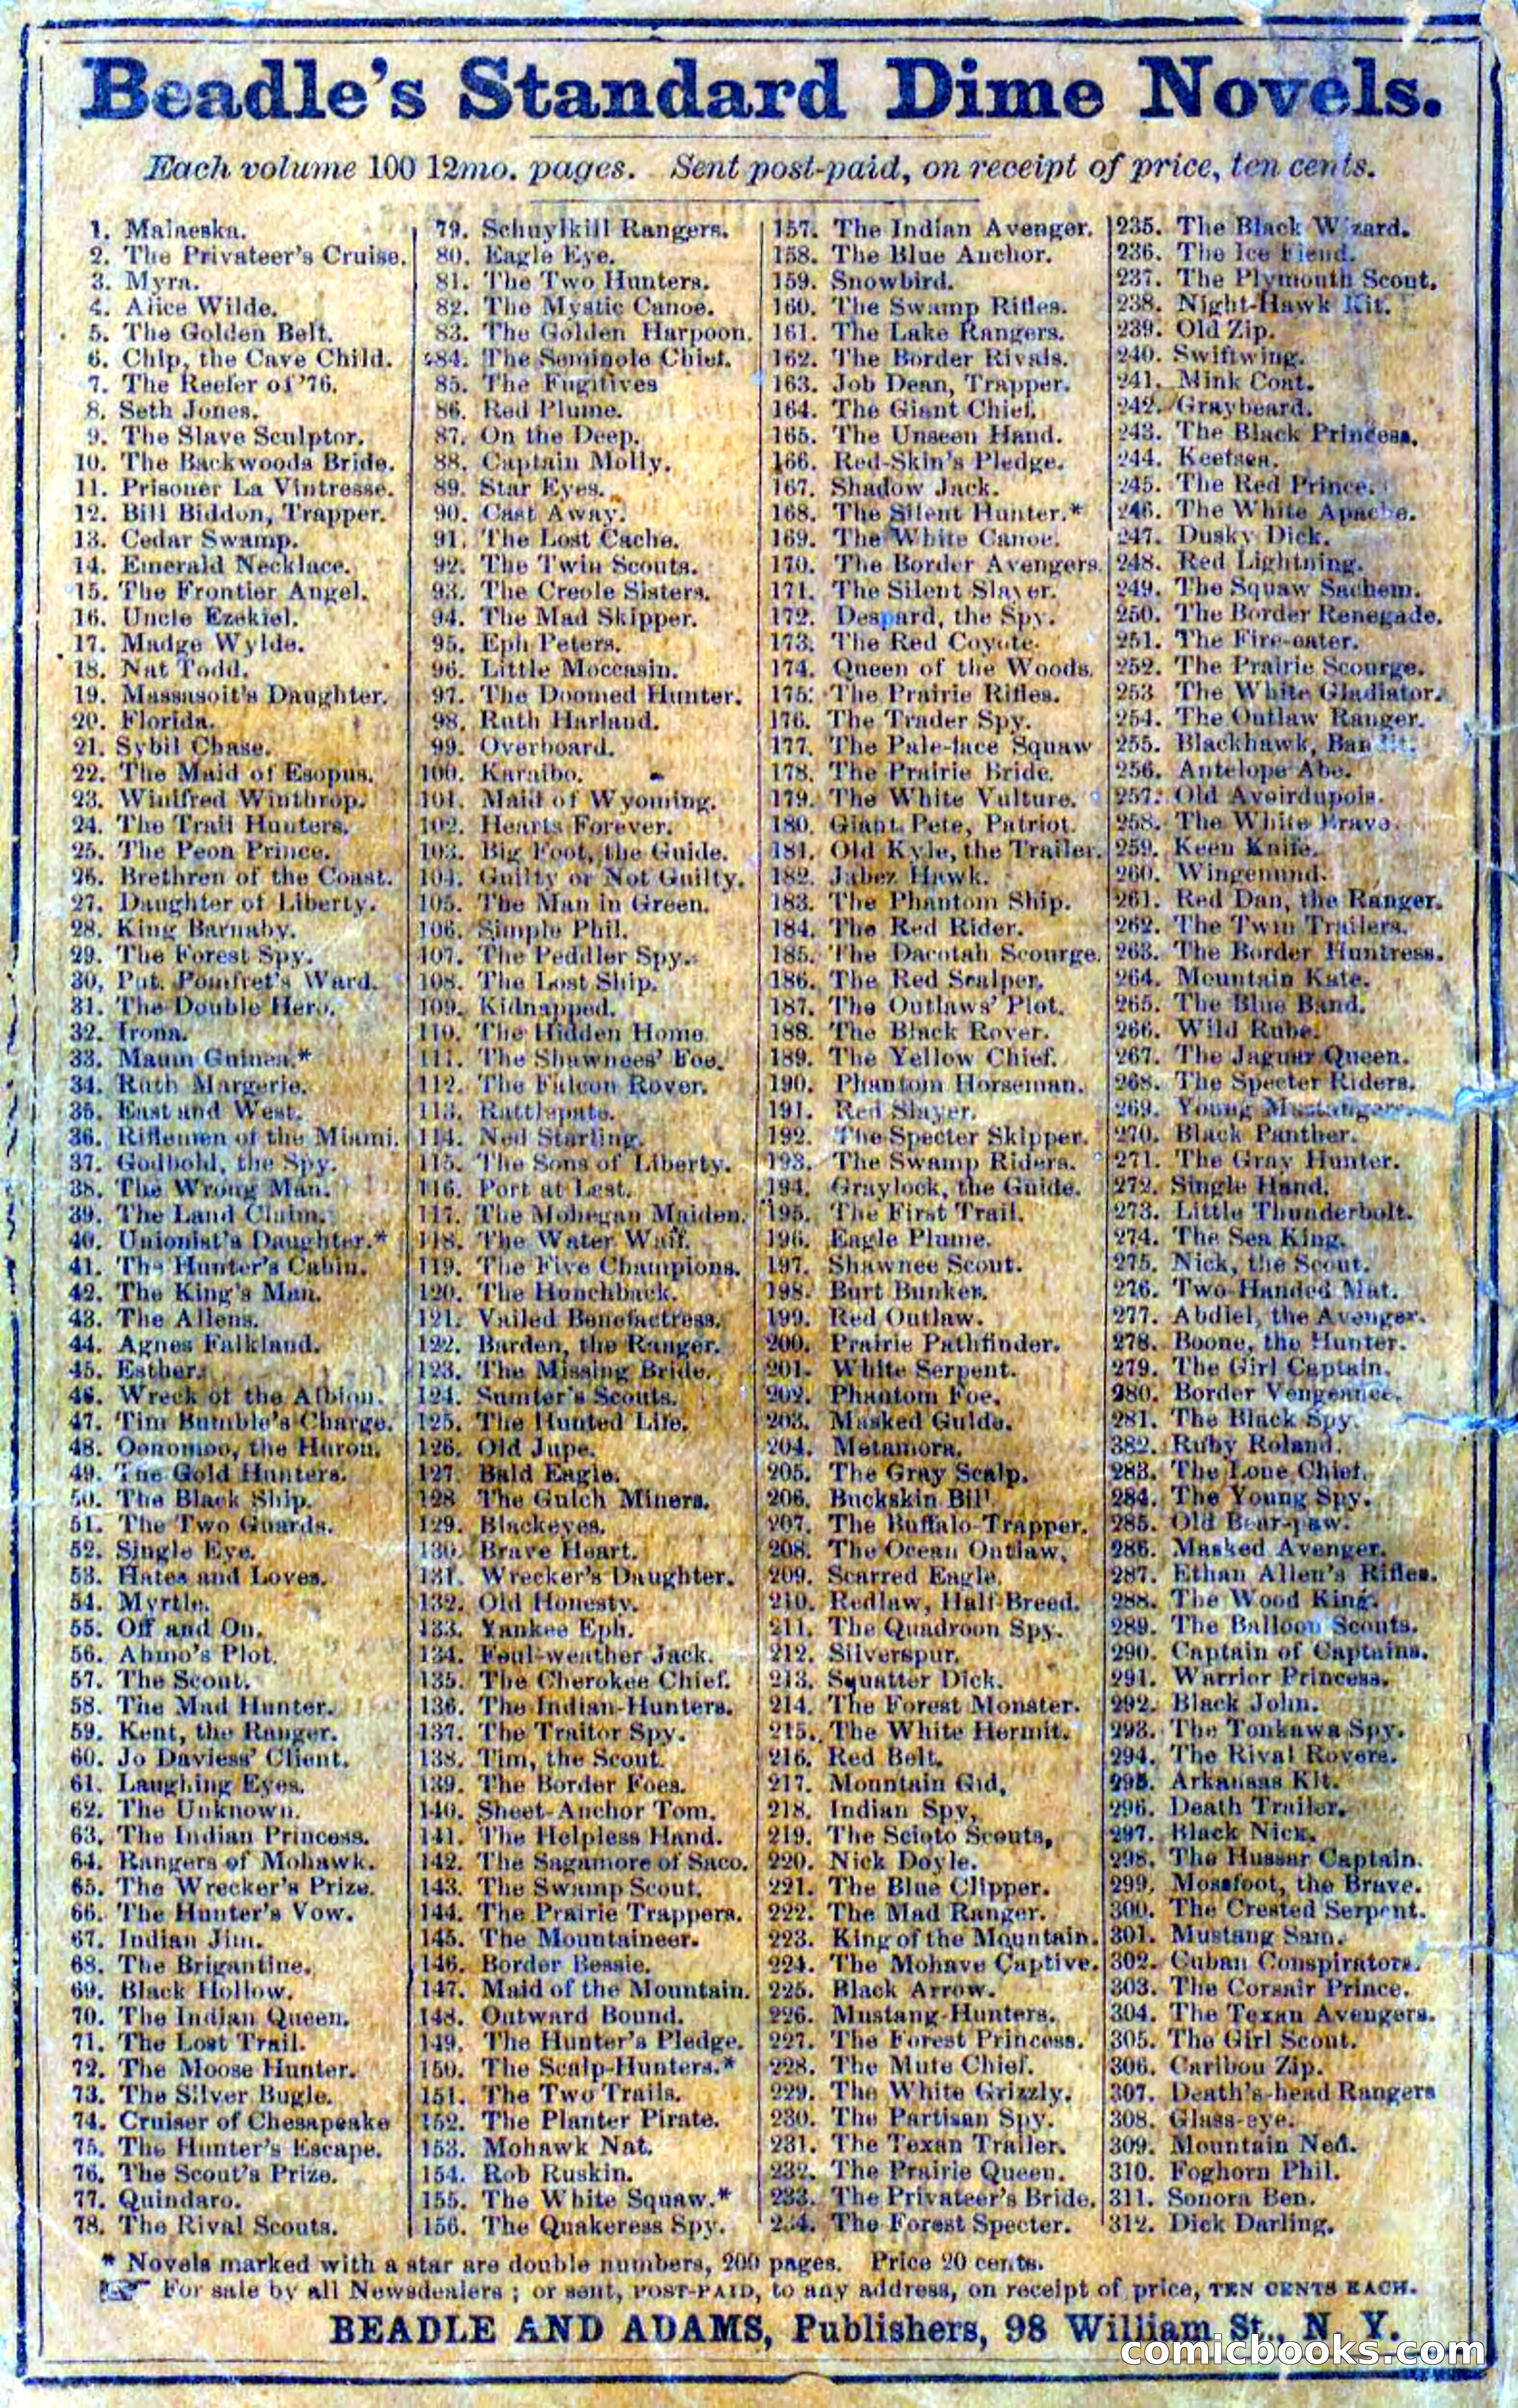 Beadle's Standard Dime Novels.
Each volume 100 12mo. pages. Sent post-paid, on receipt of price, ten cents.
1. Malaeska.
2. The Privateer's Cruise.
3. Myra.
4. Alice Wilde.
5. The Golden Belt.
6. Chip, the Cave Child.
7. The Reefer of '76.
8. Seth Jones.
9. The Slave Sculptor.
10. The Backwoods Bride.
11. Prisoner La Vintresse.
12. Bill Biddon, Trapper.
13. Cedar Swamp.
14. Emerald Necklace.
15. The Frontier Angel.
16. Uncle Ezekiel.
17. Madge Wylde.
18. Nat Todd.
19. Massasoit's Daughter.
20. Florida.
21. Sybil Chase.
22. The Maid of Esopus.
23. Winifred Winthrop.
24. The Trail Hunters.
25. The Peon Prince.
26. Brethren of the Coast.
27. Daughter of Liberty.
28. King Barnaby.
29. The Forest Spy.
30, Put. Pomfret's Ward.
31. The Double Hero.
32. Irona.
33. Maum Guinea.*
34. Ruth Margerie.
35. East and West.
36. Riflemen of the Miami.
37. Godbold, the Spy.
38. The Wrong Man.
39. The Land Claim.
40. Unionist's Daughter.*
41. The Hunter's Cabin.
42. The King's Man.
43. The Allens.
44. Agnes Falkland.
45. Esther.
46. Wreck of the Albion.
47. Tim Bumble's Charge.
48. Oonomoo, the Huron.
49. The Gold Hunters.
50. The Black Ship.
51. The Two Guards.
52. Single Eye.
53. Hates and Loves.
54. Myrtle.
55. Off and On.
56. Ahmo's Plot.
57. The Scout.
58. The Mad Hunter.
59. Kent, the Ranger.
60. Jo Daviess' Client.
61. Laughing Eyes.
62. The Unknown.
63. The Indian Princess.
64. Rangers of Mohawk.
65. The Wrecker's Prize.
66. The Hunter's Vow.
67. Indian Jim.
68. The Brigantine.
69. Black Hollow.
70. The Indian Queen.
71. The Lost Trail.
72. The Moose Hunter.
73. The Silver Bugle.
74. Cruiser of Chesapeake
75. The Hunter's Escape.
76. The Scout's Prize.
77. Quindaro.
78. The Rival Scouts.
79. Schuylkill Rangers.
80. Eagle Eye.
81. The Two Hunters.
82. The Mystic Canoe.
83. The Golden Harpoon.
84. The Seminole Chief.
85. The Fugitives
86. Red Plume.
87. On the Deep.
88. Captain Molly.
89. Star Eyes.
90. Cast Away.
91. The Lost Cache.
92. The Twin Scouts.
93. The Creole Sisters.
94. The Mad Skipper.
95. Eph Peters.
96. Little Moccasin.
97. The Doomed Hunter.
98. Ruth Harland.
99. Overboard.
100. Karaibo.
101. Maid of Wyoming.
102. Hearts Forever.
103. Big Foot, the Guide.
104. Guilty or Not Guilty.
105. The Man in Green.
106. Simple Phil.
107. The Peddler Spy.
108. The Lost Ship.
109. Kidnapped.
110. The Hidden Home
111. The Shawnees' Foe.
112. The Falcon Rover.
113. Rattlepate.
114. Ned Starling.
115. The Sons of Liberty.
116. Port at Last.
117. The Mohegan Maiden.
118. The Water Waif.
119. The Five Champions.
120. The Hunchback.
121. Vailed Benefactress.
122. Barden, the Ranger.
123. The Missing Bride.
124. Sumter's Scouts.
125. The Hunted Life.
126. Old Jupe.
127. Bald Eagle.
128 The Gulch Miners.
129. Blackeyes.
130. Brave Heart.
131. Wrecker's Daughter.
132. Old Honesty.
133. Yankee Eph.
134. Foul-weather Jack.
135. The Cherokee Chief.
136. The Indian-Hunters.
137. The Traitor Spy.
138. Tim, the Scout.
139. The Border Foes.
140. Sheet-Anchor Tom.
141. The Helpless Hand.
142. The Sagamore of Saco.
143. The Swamp Scout.
144. The Prairie Trappers.
145. The Mountaineer.
146. Border Bessie.
147. Maid of the Mountain.
148. Outward Bound.
149. The Hunter's Pledge.
150. The Scalp-Hunters.*
151. The Two Trails.
152. The Planter Pirate.
153. Mohawk Nat.
154. Rob Ruskin.
155. The White Squaw.*
156. The Quakeress Spy.
157. The Indian Avenger.
158. The Blue Anchor.
159. Snowbird.
160. The Swamp Rifles.
161. The Lake Rangers.
162. The Border Rivals.
163. Job Dean, Trapper.
164. The Giant Chief.
165. The Unseen Hand.
166. Red-Skin's Pledge.
167. Shadow Jack.
168. The Silent Hunter.*
169. The White Canoe.
170. The Border Avengers.
171. The Silent Slayer.
172. Despard, the Spy.
173. The Red Coyote.
174. Queen of the Woods.
175. The Prairie Rifles.
176. The Trader Spy.
177. The Pale-face Squaw
178. The Prairie Bride.
179. The White Vulture.
180. Giant Pete, Patriot.
181. Old Kyle, the Trailer.
182. Jabez Hawk.
183. The Phantom Ship.
184. The Red Rider.
185. The Dacotah Scourge.
186. The Red Scalper.
187. The Outlaws' Plot.
188. The Black Rover.
189. The Yellow Chief.
190. Phantom Horseman.
191. Red Slayer.
192. The Specter Skipper.
193. The Swamp Riders.
194. Graylock, the Guide.
195. The First Trail.
196. Eagle Plume.
197. Shawnee Scout.
198. Burt Bunker.
199. Red Outlaw.
200. Prairie Pathfinder.
201. White Serpent.
202. Phantom Foe.
203. Masked Guide.
204. Metamora.
205. The Gray Scalp.
206. Buckskin Bill
207. The Buffalo-Trapper.
208. The Ocean Outlaw,
209. Scarred Eagle.
210. Redlaw, Half-Breed.
211. The Quadroon Spy.
212. Silverspur.
213. Squatter Dick.
214. The Forest Monster.
215. The White Hermit.
216. Red Belt.
217. Mountain Gid,
218. Indian Spy,
219. The Scioto Scouts,
220. Nick Doyle.
221. The Blue Clipper.
222. The Mad Ranger.
223. King of the Mountain.
224. The Mohave Captive.
225. Black Arrow.
226. Mustang-Hunters.
227. The Forest Princess.
228. The Mute Chief.
229. The White Grizzly.
230. The Partisan Spy.
231. The Texan Trailer.
232. The Prairie Queen.
233. The Privateer's Bride.
234. The Forest Specter.
235. The Black Wizard.
236. The Ice Fiend.
237. The Plymouth Scout.
238. Night-Hawk Kit.
239. Old Zip.
240. Swiftwing.
241. Mink Coat.
242. Graybeard.
243. The Black Princess.
244. Keetsea.
245. The Red Prince.
246. The White Apache.
247. Dusky Dick.
248. Red Lightning.
249. The Squaw Sachem.
250. The Border Renegade.
251. The Fire-eater.
252. The Prairie Scourge.
253 The White Gladiator.
254. The Outlaw Ranger.
255. Blackhawk, Bandit.
256. Antelope Abe.
257. Old Avoirdupois.
258. The White Brave.
259. Keen Knife.
260. Wingenund.
261. Red Dan, the Ranger.
262. The Twin Trailers.
263. The Border Huntress.
264. Mountain Kate.
265. The Blue Band.
266. Wild Rube.
267. The Jaguar Queen.
268. The Specter Riders.
269. Young Mustangers.
270. Black Panther.
271. The Gray Hunter.
272. Single Hand.
273. Little Thunderbolt.
274. The Sea King.
275. Nick, the Scout.
276. Two-Handed Mat.
277. Abdiel, the Avenger.
278. Boone, the Hunter.
279. The Girl Captain.
280. Border Vengeance.
281. The Black Spy.
382. Ruby Roland.
283. The Lone Chief.
284. The Young Spy.
285. Old Bear-paw.
286. Masked Avenger.
287. Ethan Allen's Rifles.
288. The Wood King.
289. The Balloon Scouts.
290. Captain of Captains.
291. Warrior Princess.
292. Black John.
293. The Tonkawa Spy.
294. The Rival Rovers.
295. Arkansas Kit.
296. Death Trailer.
297. Black Nick.
298. The Hussar Captain.
299. Mossfoot, the Brave.
300. The Crested Serpent.
301. Mustang Sam.
302. Cuban Conspirators.
303. The Corsair Prince.
304. The Texan Avengers.
305. The Girl Scout.
306. Caribou Zip.
307. Death's-head Rangers
308. Glass-eye.
309. Mountain Ned.
310. Foghorn Phil.
311. Sonora Ben.
312. Dick Darling.
* Novels marked with a star are double numbers, 200 pages. Price 20 cents.
☞ For sale by all Newsdealers ; or sent, POST-PAID, to any address, on receipt of price, TEN CENTS EACH.
BEADLE AND ADAMS, Publishers, 98 William St., N. Y.
comicbooks.com